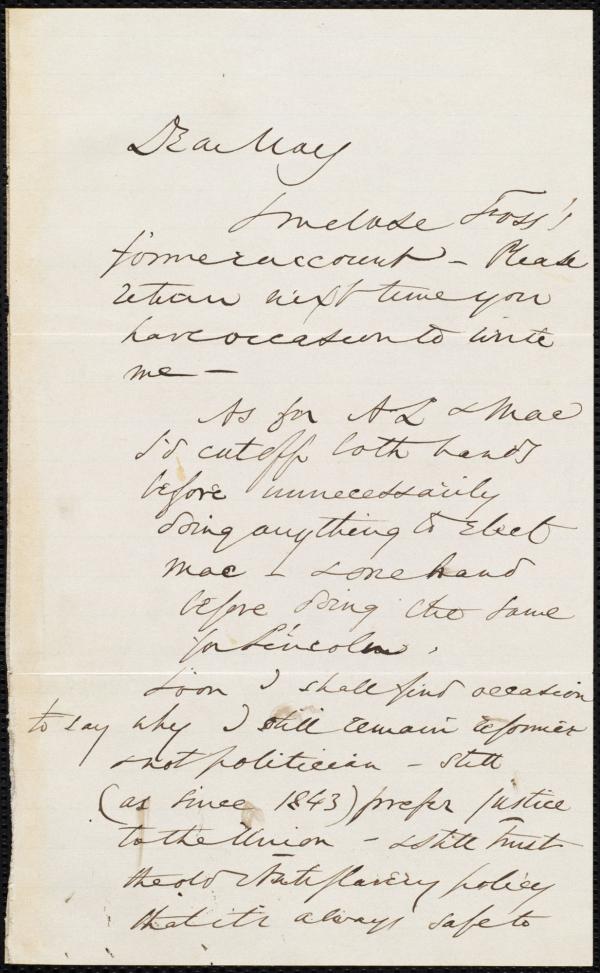 Dear May
I inclose Foss's
former account – Please
return next time you
have occasion to write
me –
As for A L & Mac
I'd cut off both hands
before unnecessarily
doing anything to elect
Mac – & one hand
before doing the same
for Lincoln.
Soon I shall find occasion
to say why I still remain reformer
& not politician – still
(as since 1843) prefer justice
to the Union – & still trust
the old Antislavery policy
that it is always safe to